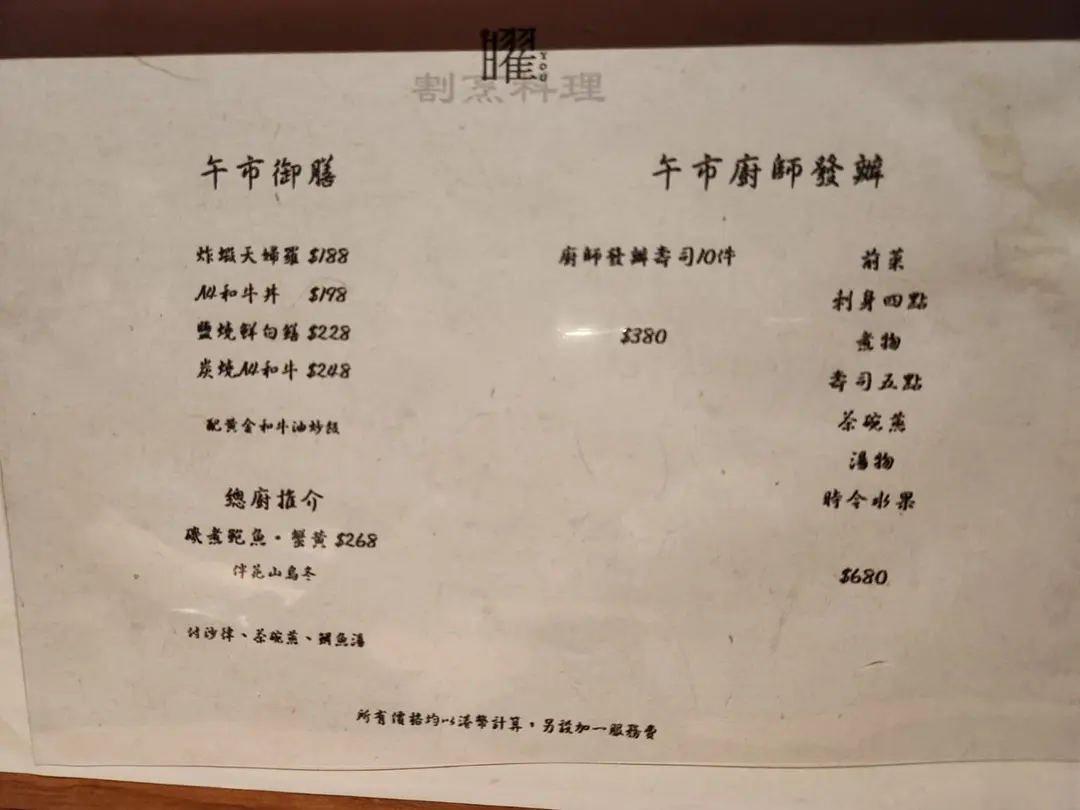 曜 YOU
割烹料理
午市御膳
炸蝦天婦羅 $188
A4和牛丼 $198
鹽燒鮮白鱔 $228
炭燒A4和牛 $248
配黃金和牛油炒飯
總廚推介
磯煮鮑魚·蟹黃 $268
伴花山烏冬
付沙律、茶碗蒸、鯛魚湯
午市廚師發辦
廚師發辦壽司10件
$380
前菜
刺身四點
煮物
壽司五點
茶碗蒸
湯物
時令水果
$680
所有價格均以港幣計算，另設加一服務費